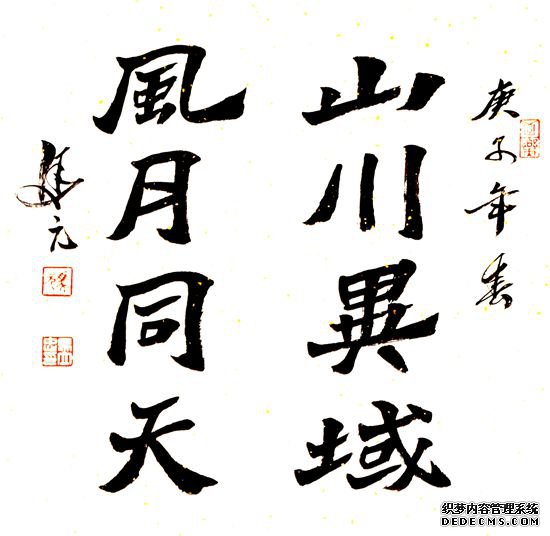 庚子年春
山川異域
風月同天
织梦内容管理系统
DEDECMS.COM